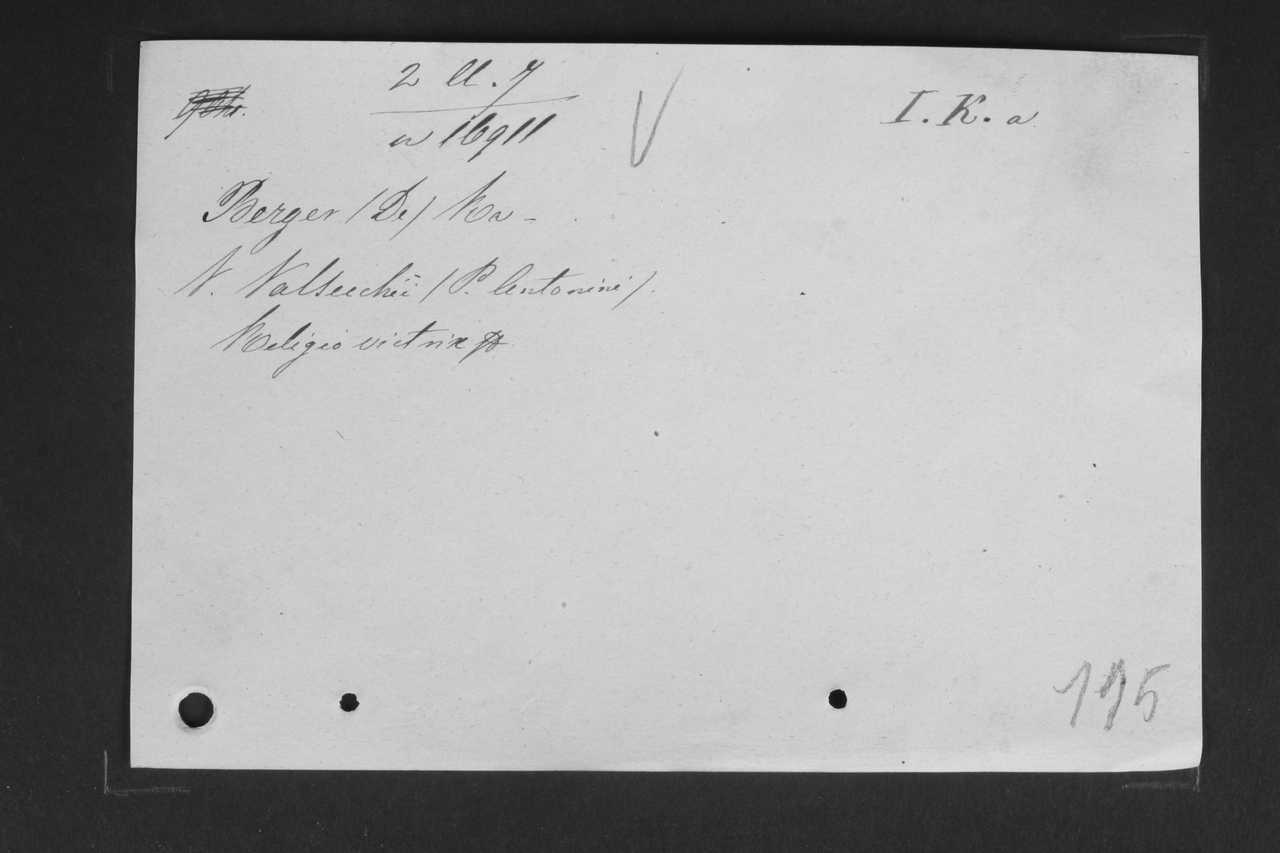 2 ll. 7
a 16911
I. K. a
Berger (De) Ra-
V. Valsecchii (P. Antonini).
Religio victrix
195